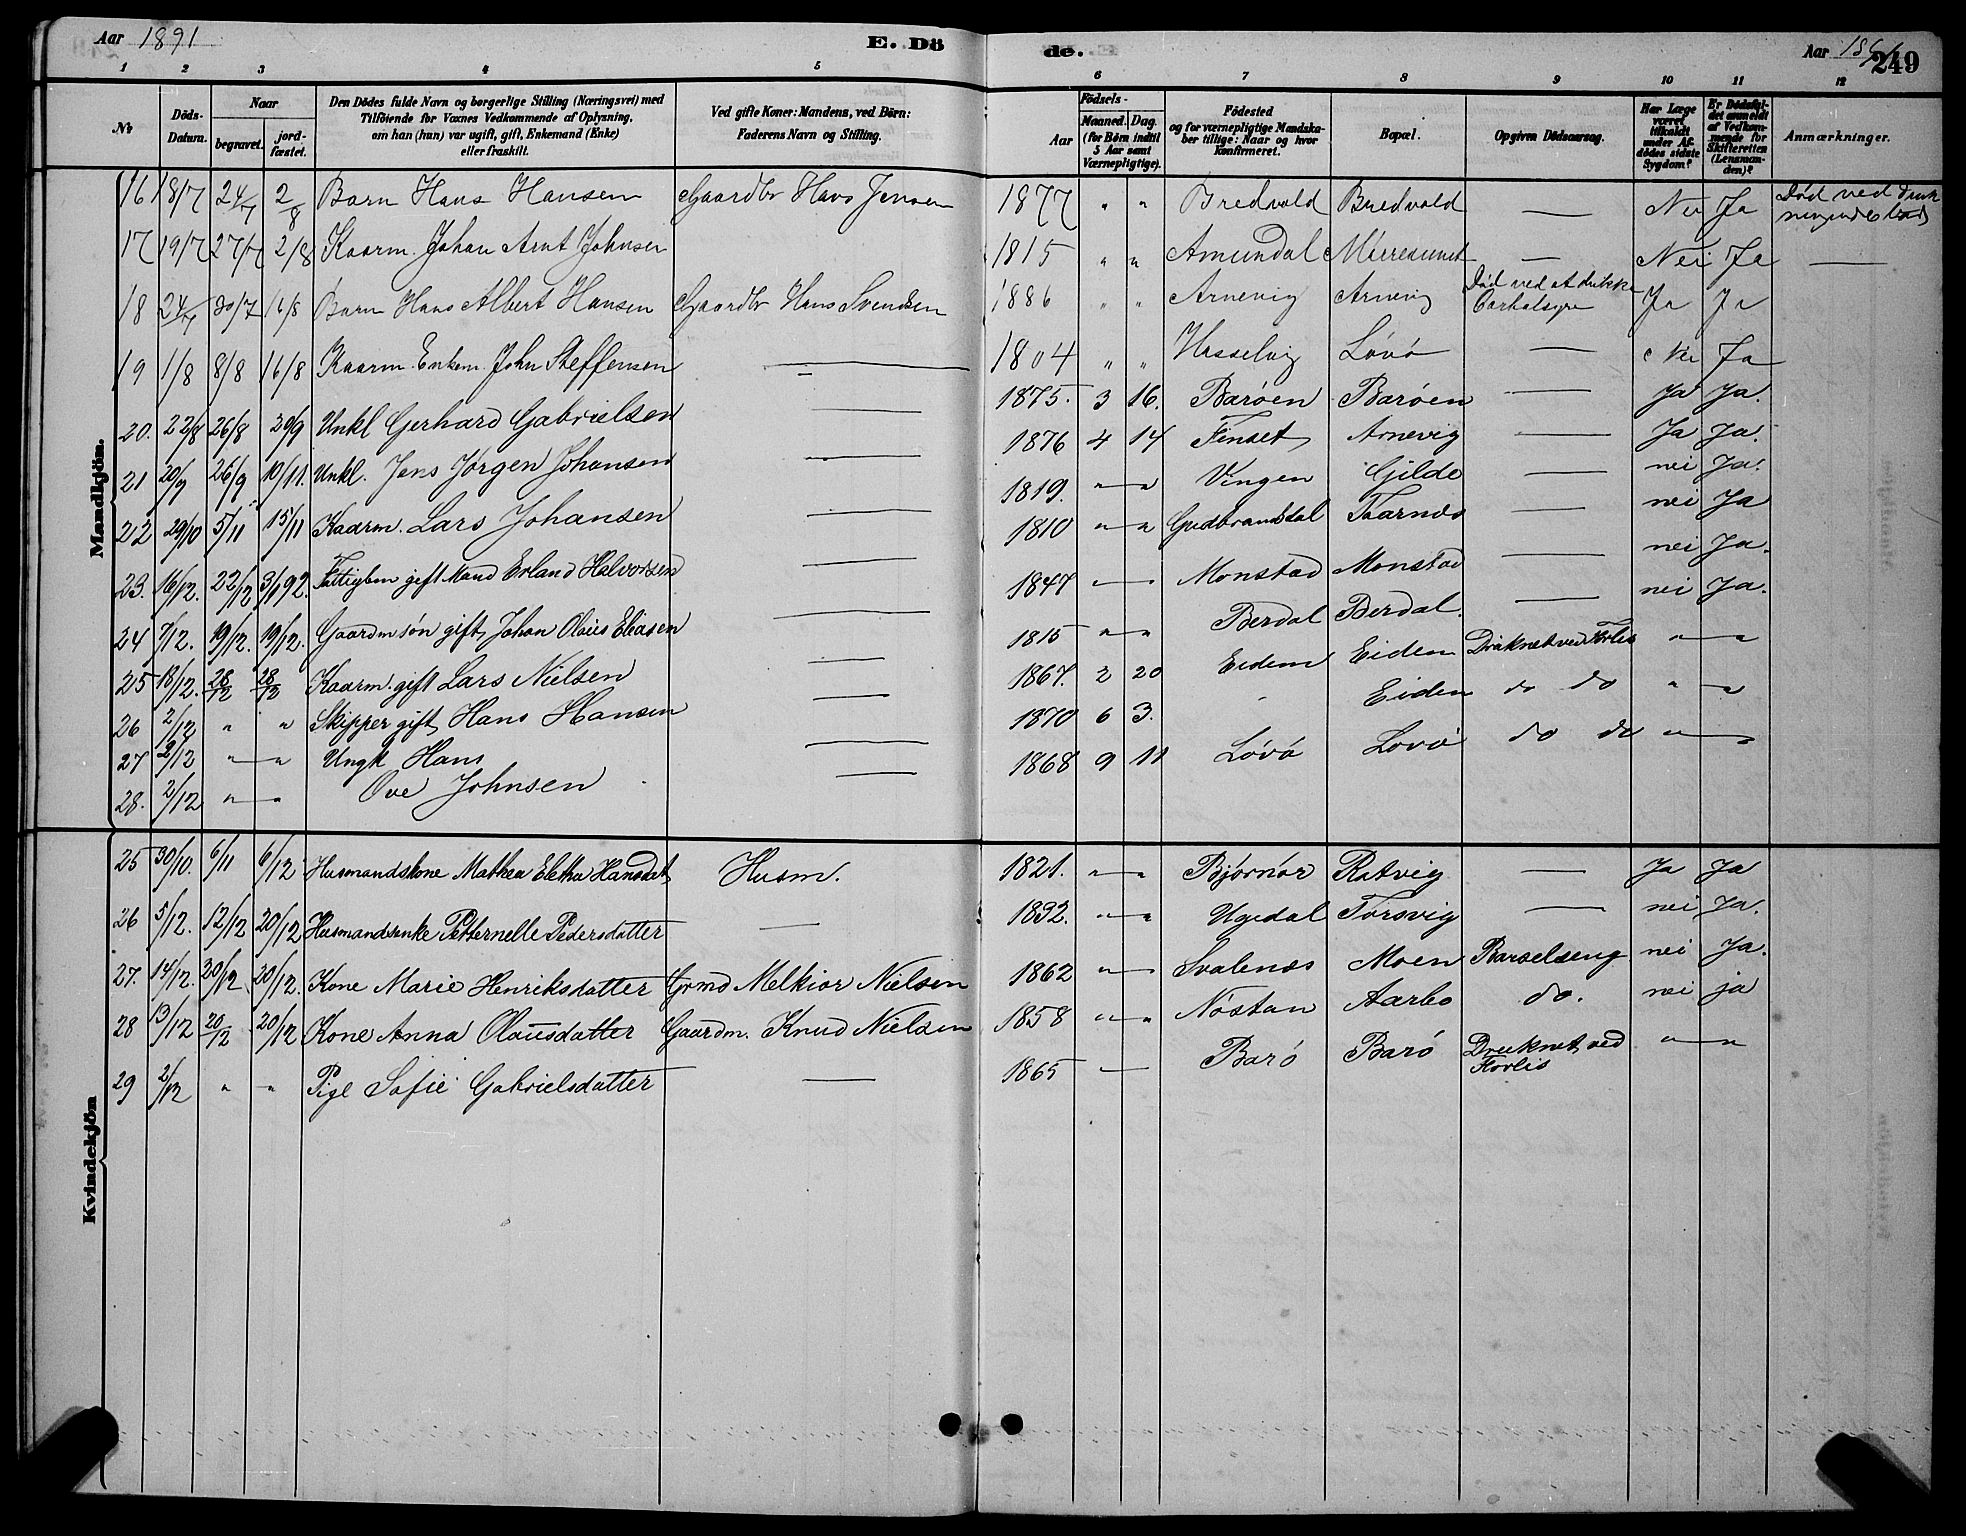 Aar 1891
E. Dö
de.
Aar 189
249
1 2 3 4 5 6 7 8 9 10 11 12
No
Döds-Datum.
Naar
begravet.
jord-fæstet.
Den Dödes fulde Navn og borgerlige Stilling (Næringsvei) med
Tilföiende for Voxnes Vedkommende af Oplysning,
om han (hun) var ugift, gift, Enkemand (Enke)
eller fraskilt.
Ved gifte Koner: Mandens, ved Börn:
Faderens Navn og Stilling.
Födsels-
Aar
Maaned. Dag.
(for Börn indtil
5 Aar samt
Værnepligtige).
Födested
og for værnepligtige Mandska-
ber tillige: Naar og hvor
Konfirmeret.
Bopæl.
Opgiven Dödsaarsag.
Har Læge
været
tilkaldt
under Af-
dödes sidste
Sygdom?
Er Dödsfal-
det anmeldt
af Vedkom-
mende for
Skifteretten
(Lensman-
den)?
Anmærkninger.
Mandkjön.
16 18/7 24/7 2/8 Barn Hans Hansen Gaardbr Hans Jensen 1877 " " Bredvold Bredvold — Nei Ja Død ved
17 19/7 27/7 2/8 Kaarm. Johan Arnt Johnsen 1815 " " Amundal — Nei Ja —
18 24/7 30/7 16/8 Barn Hans Albert Hansen Gaardbr Hans Svendsen 1886 " " Arnevig Arnevig Død ved at drikke Carbolsyre Ja Ja
19 1/8 8/8 16/8 Kaarm. Enkem. John Steffensen — 1804 " " Hasselvig Løvø — Nei Ja
20. 22/8 26/8 20/9 Unkl Gerhard Gabrielsen — 1875. 3 16. Barøen Barøen — Ja Ja.
21 20/9 26/9 10/11. Unkl. Jens Jørgen Johansen — 1876 4 14 Finset Arnevig — Ja Ja.
22 29/10 5/11 15/11 Kaarm. Lars Johansen — 1819. " — " Vingen Gilde — nei Ja.
23. 16/12. 22/12 3/1 92. Fattiglem gift Mand Erland Halvorsen — 1810 " — " Gudbrandsdal Taarnes — nei Ja
24 7/12. 19/12. 19/12. Gaardm søn gift, Johan Olaus Eliasen — 1847 " — Monstad Monstad — nei Ja.
25 18/12. 28/12 28/12 Kaarm. gift Lars Nielsen — 1815 " — " Berdal Berdal. — nei Ja.
26 2/12 " " Skipper gift Hans Hansen — 1867. 2 20 Eidem Eiden Druknet ved Forlis " — "
27 2/12 " — " Ungk Hans — 1870 6 3. " Eiden do do " — "
28. 2/12 " — " Ove Johnsen — 1868 9 11 Løvø Lovø do do " — "
Kvindekjön
25 30/10. 6/11 6/12 Husmandskone Mathea Eletha Hansdat Husm. 1821. " — " Bjørnør Ratvig — Ja Ja
26 5/12. 12/12 20/12 Husmandsenke Petternelle Pedersdatter — 1832. " — " Ugedal Torsvig — nei Ja.
27. 14/12. 20/12 20/12. Kone Marie Henriksdatter Grmd Melkior Nielsen 1862 " — Svalenæs Moen Barselseng nei Ja.
28 13/12 20/12 20/12 Kone Anna Olausdatter Gaardm. Knud Nielsen 1858 " — " Nøstan Aarbo do. nei ja
29 2/12 " " Pige Sofie Gabrielsdatter — 1865 " — Barø Barø Druknet ved Forlis " — "